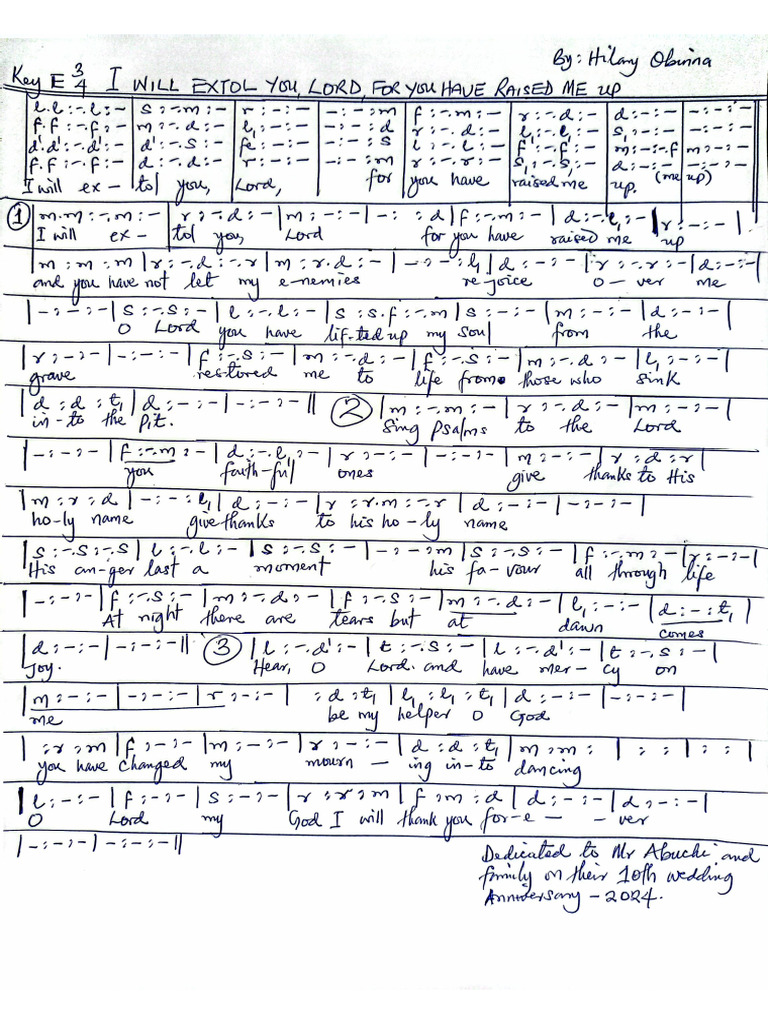 By: Hilary Obinna
Key E 3/4 I WILL EXTOL YOU, LORD, FOR YOU HAVE RAISED ME UP
l.l:-.l:-|s:-.m:-|r:-:-|-:-:m|f:-.m:-|r:-.d:-|d:-:-|-:-:-
f.f:-.f:-|m:-.d:-|l₁:-:-|-:-:d|r:-.d:-|l₁:-.l₁:-|s₁:-:-|-:-:-
d'.d':-.d':-|d':-.s:-|fe:-:-|-:-:s|l:-.l:-|f:-.f:-|m:-:-.f|m:-:-
f.f:-.f:-|d:-.d:-|r:-:-|-:-:m|r:-.r:-|s₁:-.s₁:-|d:-:-|-:-:-
I will ex- tol you, Lord, for you have raised me up. (me up)
1 |m.m:-.m:-|r:-.d:-|m:-:-|-: :d|f:-.m:-|d:-.l₁:-|r:-:-|
I will ex- tol you, Lord for you have raised me up
|m:m:m|r:-.d:-.r|m:r.d:-|-:-:l₁|d:-:-|r:-.r:-|d:-:-|
and you have not let my e-nemies re-joice o-ver me
|-:-:-|s:-.s:-|l:-.l:-|s:s.f:-.m|s:-:-|m:-:-|d:-:-|
O Lord you have lif-ted up my soul from the
|r:-:-|-:-:-|f:-.s:-|m:-.d:-|f:-.s:-|m:-.d:-|l₁:-:-|
grave restored me to life from those who sink
|d:d:t₁|d:-:-|-:-:-|| 2 |m:-.m:-|r:-.d:-|m:-:-|
in-to the pit. Sing psalms to the Lord
|-:-:-|f:-.m:-|d:-.l₁:-|r:-:-|-:-:-|m:-:-|r:d:r|
you faith-ful ones give thanks to His
|m:r:d|-:-:l₁|d:-:-|r:r.m:-.r|d:-:-|-:-:-|
ho-ly name give thanks to his ho-ly name
|s:-.s:-.s|l:-.l:-|s:-.s:-|-:-:m|s:-.s:-|f:-.m:-|r:-:-|
His an-ger last a moment his fa-vour all through life
|-:-:-|f:-.s:-|m:-.d:-|f:-.s:-|m:-.d:-|l₁:-:-|d:-:t₁|
At night there are tears but at dawn comes
|d:-:-|-:-:-|| 3 |l:-.d':-|t:-.s:-|l:-.d':-|t:-.s:-|
Joy. Hear, O Lord. and have mer-cy on
|m:-:-|-:-:-|r:-:-| :d:t₁|l₁:l₁:t₁|d:-:-|-:-:-|
me be my helper O God
|:r:m|f:-:-|m:-:-|r:-:-|d:d:t₁|m:m: | : : | : : |
you have changed my mourn-ing in-to dancing
|l:-:-|f:-:-|s:-:-|r:r:m|f:m:d|d:-:-|d:-:-|
O Lord my God I will thank you for-e--ver
|-:-:-|-:-:-||
Dedicated to Mr Abuchi and
family on their 10th wedding
Anniversary - 2024.